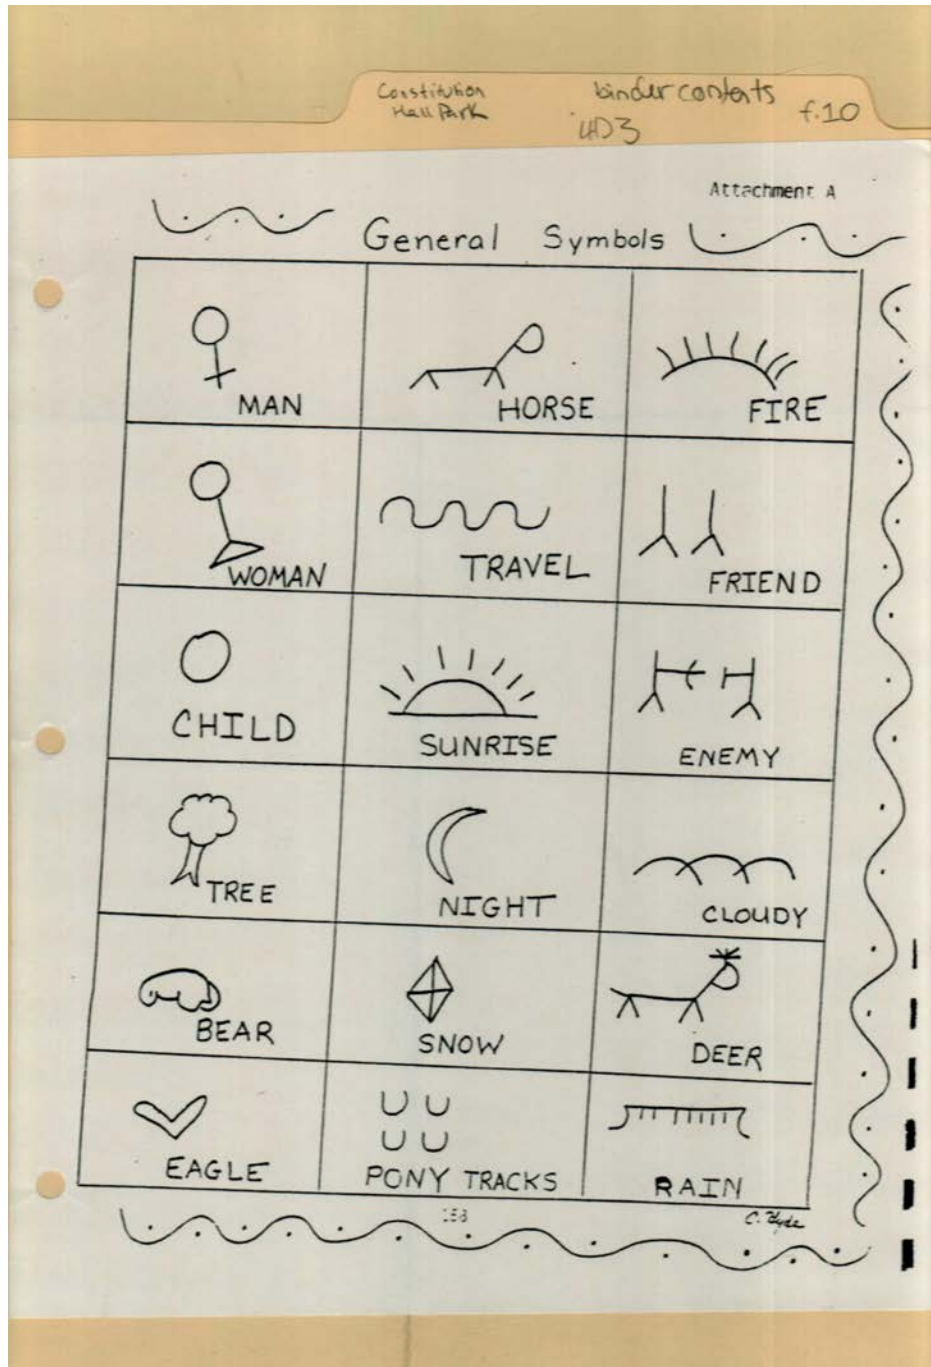 Constitution
Hall Park
binder contents
4D3
f.10
Attachment A
General Symbols
MAN HORSE FIRE
WOMAN TRAVEL FRIEND
CHILD SUNRISE ENEMY
TREE NIGHT CLOUDY
BEAR SNOW DEER
EAGLE PONY TRACKS RAIN
158
C. Hyde